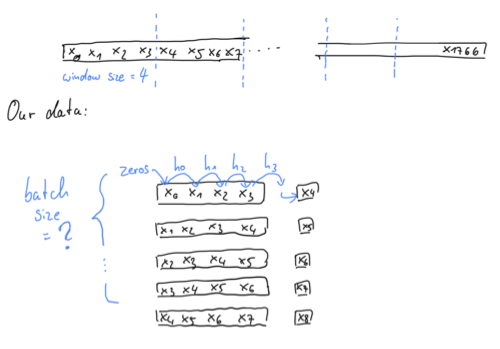 x0 x1 x2 x3 x4 x5 x6 x7 .... x1766
window size = 4
Our data:
zeros h0 h1 h2 h3
x0 x1 x2 x3 x4
batch size = ?
x1 x2 x3 x4 x5
x2 x3 x4 x5 x6
x3 x4 x5 x6 x7
x4 x5 x6 x7 x8